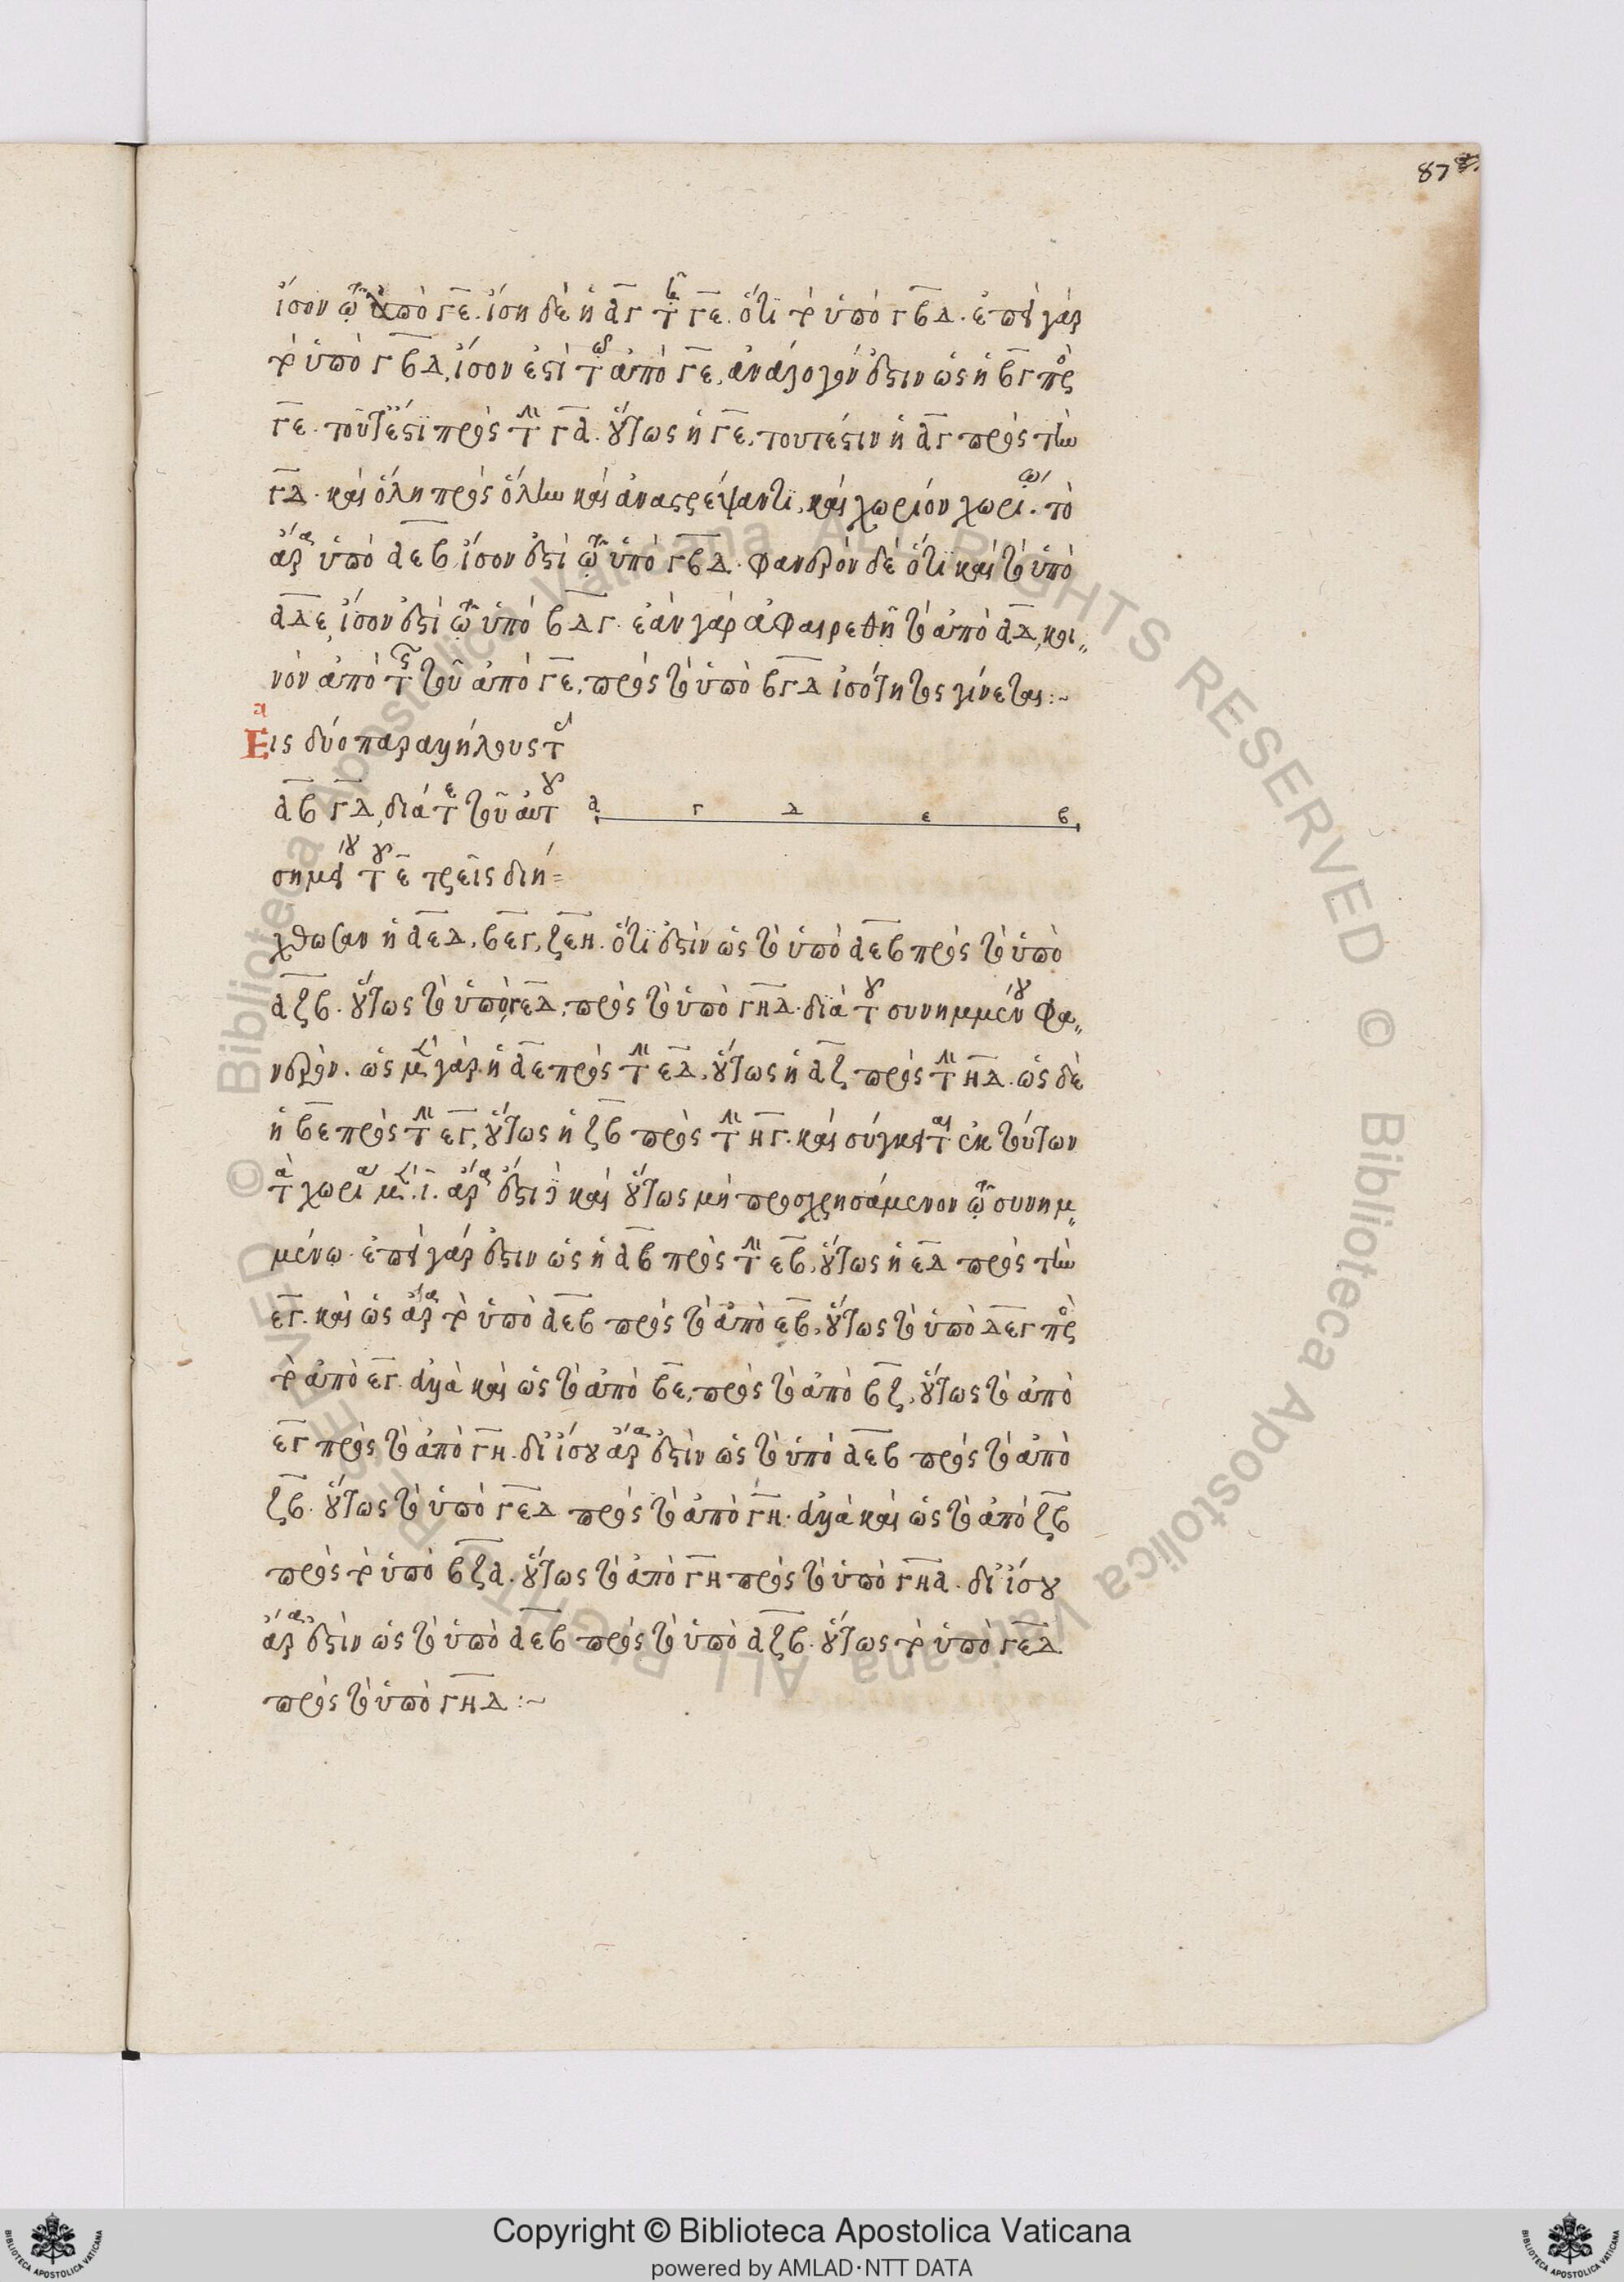 87
ἴσον τῷ ἀπὸ ΓΕ. ἴση δὲ ἡ ΑΓ τῇ ΓΕ. ὅτι τὸ ὑπὸ ΓΒΔ. ἐπεὶ γὰρ
τὸ ὑπὸ ΓΒΔ, ἴσον ἐστὶ τῷ ἀπὸ ΓΕ, ἀνάλογόν ἐστιν ὡς ἡ ΒΓ πρὸς
ΓΕ. τουτέστι πρὸς τὴν ΓΑ. οὕτως ἡ ΓΕ, τουτέστιν ἡ ΑΓ πρὸς τὴν
ΓΔ. καὶ ὅλη πρὸς ὅλην καὶ ἀναστρέψαντι, καὶ χωρίον χωρίῳ. τὸ
ἄρα ὑπὸ ΑΕΒ ἴσον ἐστὶ τῷ ὑπὸ ΓΒΔ. φανερὸν δὲ ὅτι καὶ τὸ ὑπὸ
ΑΔΕ, ἴσον ἐστὶ τῷ ὑπὸ ΒΔΓ. ἐὰν γὰρ ἀφαιρεθῇ τὸ ἀπὸ ΑΔ, κοι„
νὸν ἀπὸ τῆς τοῦ ἀπὸ ΓΕ, πρὸς τὸ ὑπὸ ΒΓΔ ἰσότητος γίνεται:~
α
Εἰς δύο παραλλήλους τὰς
ΑΒ ΓΔ, διά τε τοῦ αὐτοῦ
α Γ Δ ε β
σημείου τοῦ Ε τρεῖς διή=
χθωσαν ἡ ΑΕΔ, ΒΕΓ, ΖΕΗ. ὅτι ἐστὶν ὡς τὸ ὑπὸ ΑΕΒ πρὸς τὸ ὑπὸ
ΑΖΒ. οὕτως τὸ ὑπὸ ΓΕΔ, πρὸς τὸ ὑπὸ ΓΗΔ. διὰ τοῦ συνημμένου φα„
νερόν. ὡς μὲν γὰρ ἡ ΑΕ πρὸς τὴν ΕΔ, οὕτως ἡ ΑΖ πρὸς τὴν ΗΔ. ὡς δὲ
ἡ ΒΕ πρὸς τὴν ΕΓ, οὕτως ἡ ΖΒ πρὸς τὴν ΗΓ. καὶ σύγκειται ἐκ τούτων
τὰ χωρία μεν. ι. ἄρα ἔστι καὶ οὕτως μὴ προσχρησάμενον τῷ συνημ„
μένῳ. ἐπεὶ γάρ ἐστιν ὡς ἡ ΑΒ πρὸς τὴν ΕΒ, οὕτως ἡ ΕΔ πρὸς τὴν
ΕΓ. καὶ ὡς ἄρα τὸ ὑπὸ ΑΕΒ πρὸς τὸ ἀπὸ ΕΒ, οὕτως τὸ ὑπὸ ΔΕΓ πρὸς
τὸ ἀπὸ ΕΓ. ἀλλὰ καὶ ὡς τὸ ἀπὸ ΒΕ, πρὸς τὸ ἀπὸ ΒΖ, οὕτως τὸ ἀπὸ
ΕΓ πρὸς τὸ ἀπὸ ΓΗ. δι' ἴσου ἄρα ἐστὶν ὡς τὸ ὑπὸ ΑΕΒ πρὸς τὸ ἀπὸ
ΖΒ. οὕτως τὸ ὑπὸ ΓΕΔ πρὸς τὸ ἀπὸ ΓΗ. ἀλλὰ καὶ ὡς τὸ ἀπὸ ΖΒ
πρὸς τὸ ὑπὸ ΒΖΑ. οὕτως τὸ ἀπὸ ΓΗ πρὸς τὸ ὑπὸ ΓΗΑ. δι' ἴσου
ἄρα ἐστὶν ὡς τὸ ὑπὸ ΑΕΒ πρὸς τὸ ὑπὸ ΑΖΒ. οὕτως τὸ ὑπὸ ΓΕΔ
πρὸς τὸ ὑπὸ ΓΗΔ:~
© Biblioteca Apostolica Vaticana ALL RIGHTS RESERVED
© Biblioteca Apostolica Vaticana ALL RIGHTS RESERVED
BIBLIOTECA APOSTOLICA VATICANA
Copyright © Biblioteca Apostolica Vaticana
powered by AMLAD·NTT DATA
BIBLIOTECA APOSTOLICA VATICANA